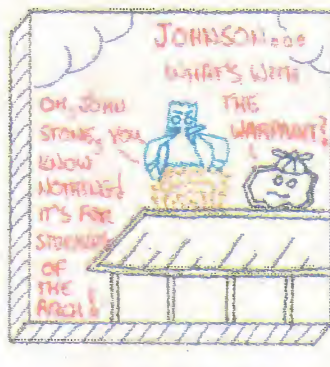 JOHNSON...
WHAT'S WITH
THE
WARPAINT?
OH, JOHN
STONE, YOU
KNOW
NOTHING!
IT'S FOR
OF
THE
ARCH!